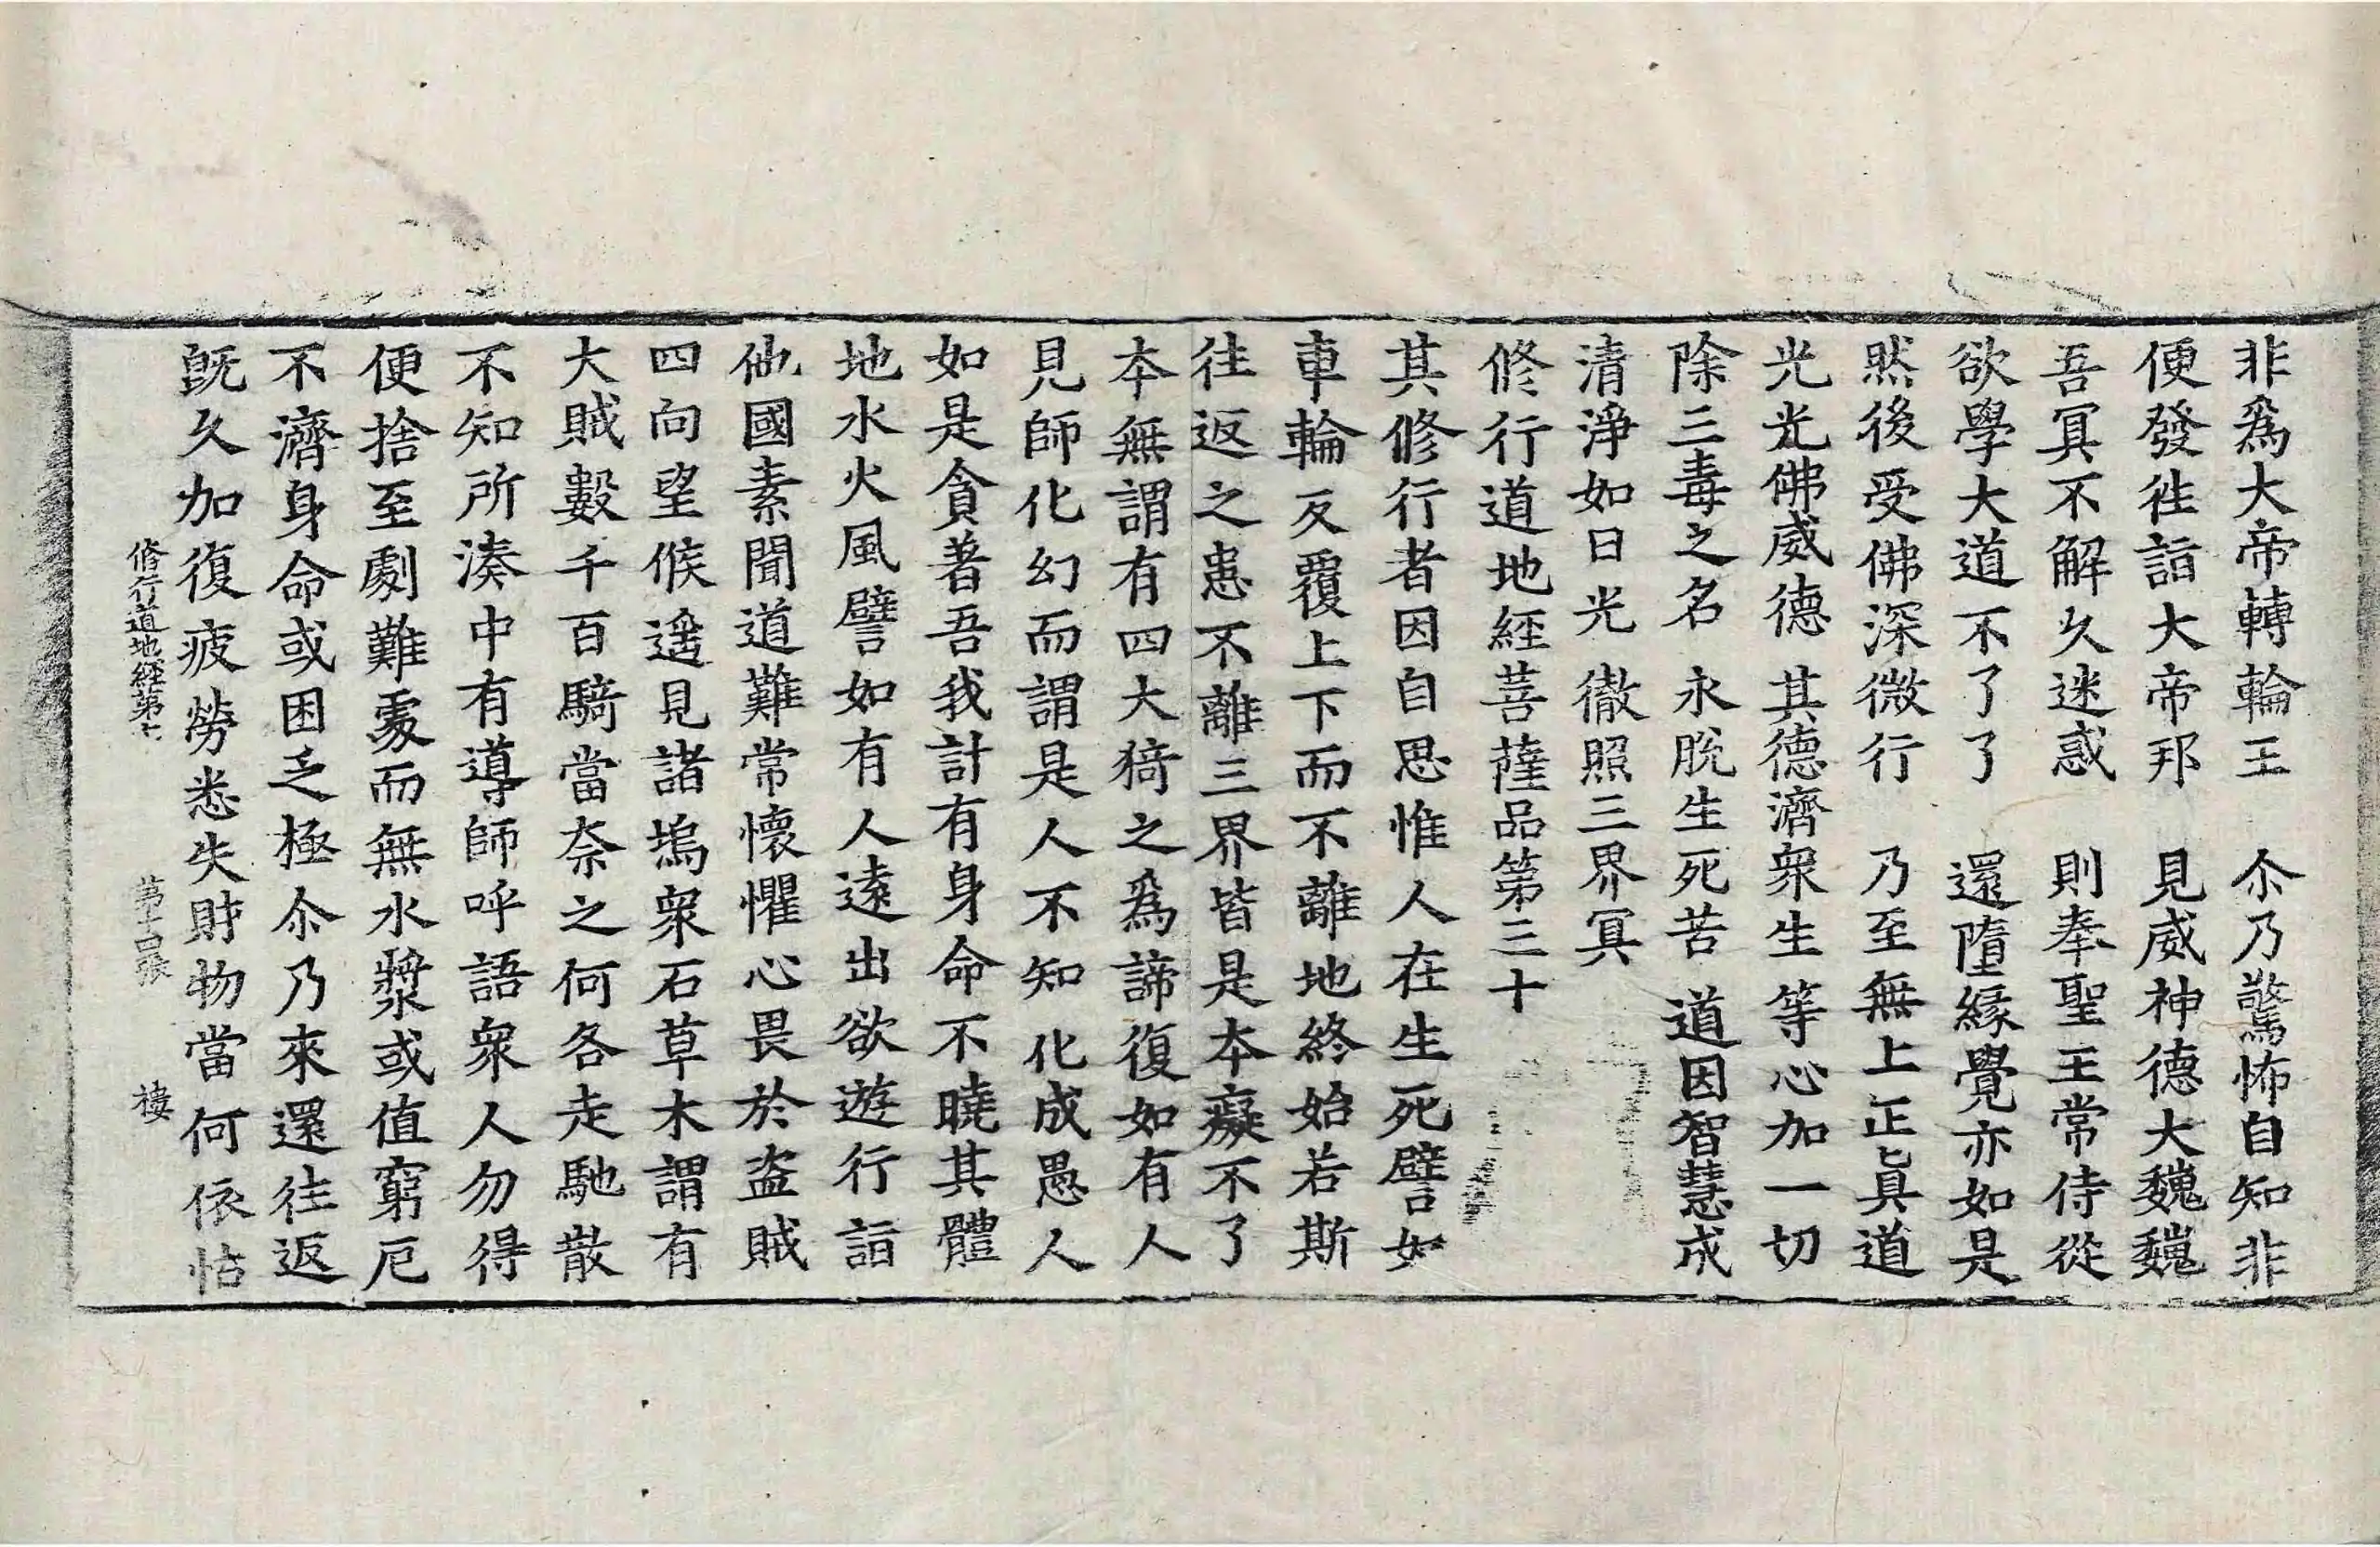 非爲大帝轉輪王　尒乃驚怖自知非
便發徃詣大帝邦　見威神德大魏魏
吾冥不解久迷惑　則奉聖王常侍從
欲學大道不了了　還墮緣覺亦如是
然後受佛深微行　乃至無上正真道
光光佛威德　其德濟衆生　等心加一切
除三毒之名　永脫生死苦　道因智慧成
清淨如日光　徹照三界冥
修行道地經菩薩品第三十
其修行者因自思惟人在生死譬如
車輪反覆上下而不離地終始若斯
往返之患不離三界皆是本癡不了
本無謂有四大猗之爲諦復如有人
見師化幻而謂是人不知化成愚人
如是貪著吾我計有身命不曉其體
地水火風譬如有人遠出欲遊行詣
他國素聞道難常懷懼心畏於盗賊
四向望候遥見諸塢衆石草木謂有
大賊數千百騎當奈之何各走馳散
不知所湊中有導師呼語衆人勿得
便捨至劇難處而無水漿或值窮厄
不濟身命或困乏極尒乃來還往返
旣久加復疲勞悉失財物當何依怙
脩行道地經第七　第十四張　樓